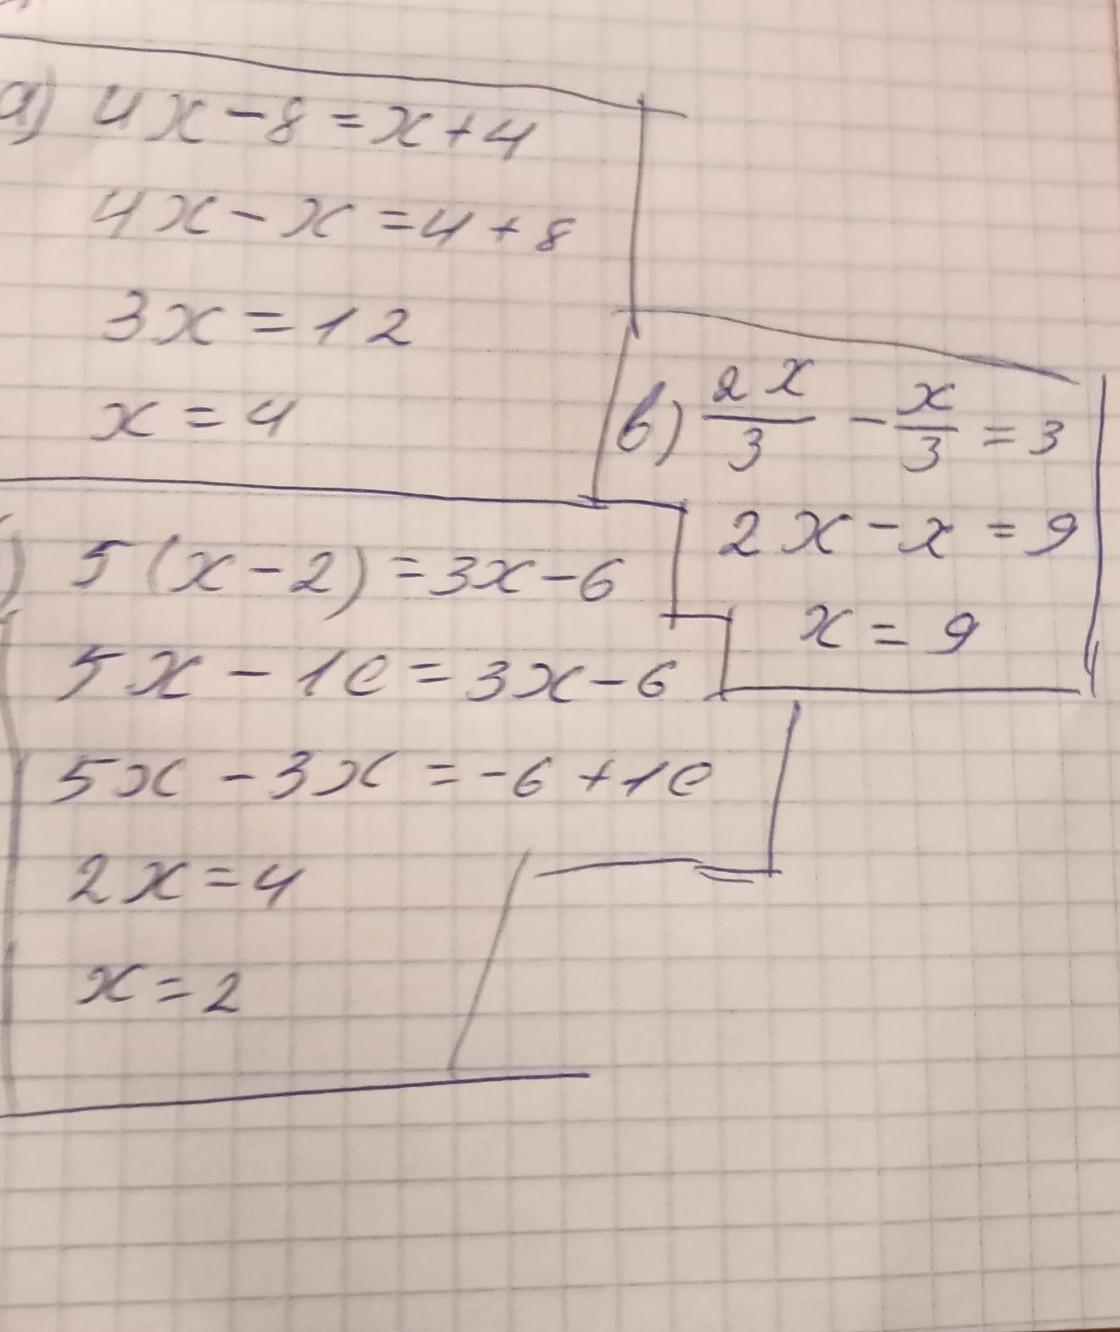 а) 4x - 8 = x + 4
4x - x = 4 + 8
3x = 12
x = 4
) 5(x - 2) = 3x - 6
5x - 10 = 3x - 6
5x - 3x = -6 + 10
2x = 4
x = 2
в) 2x/3 - x/3 = 3
2x - x = 9
x = 9